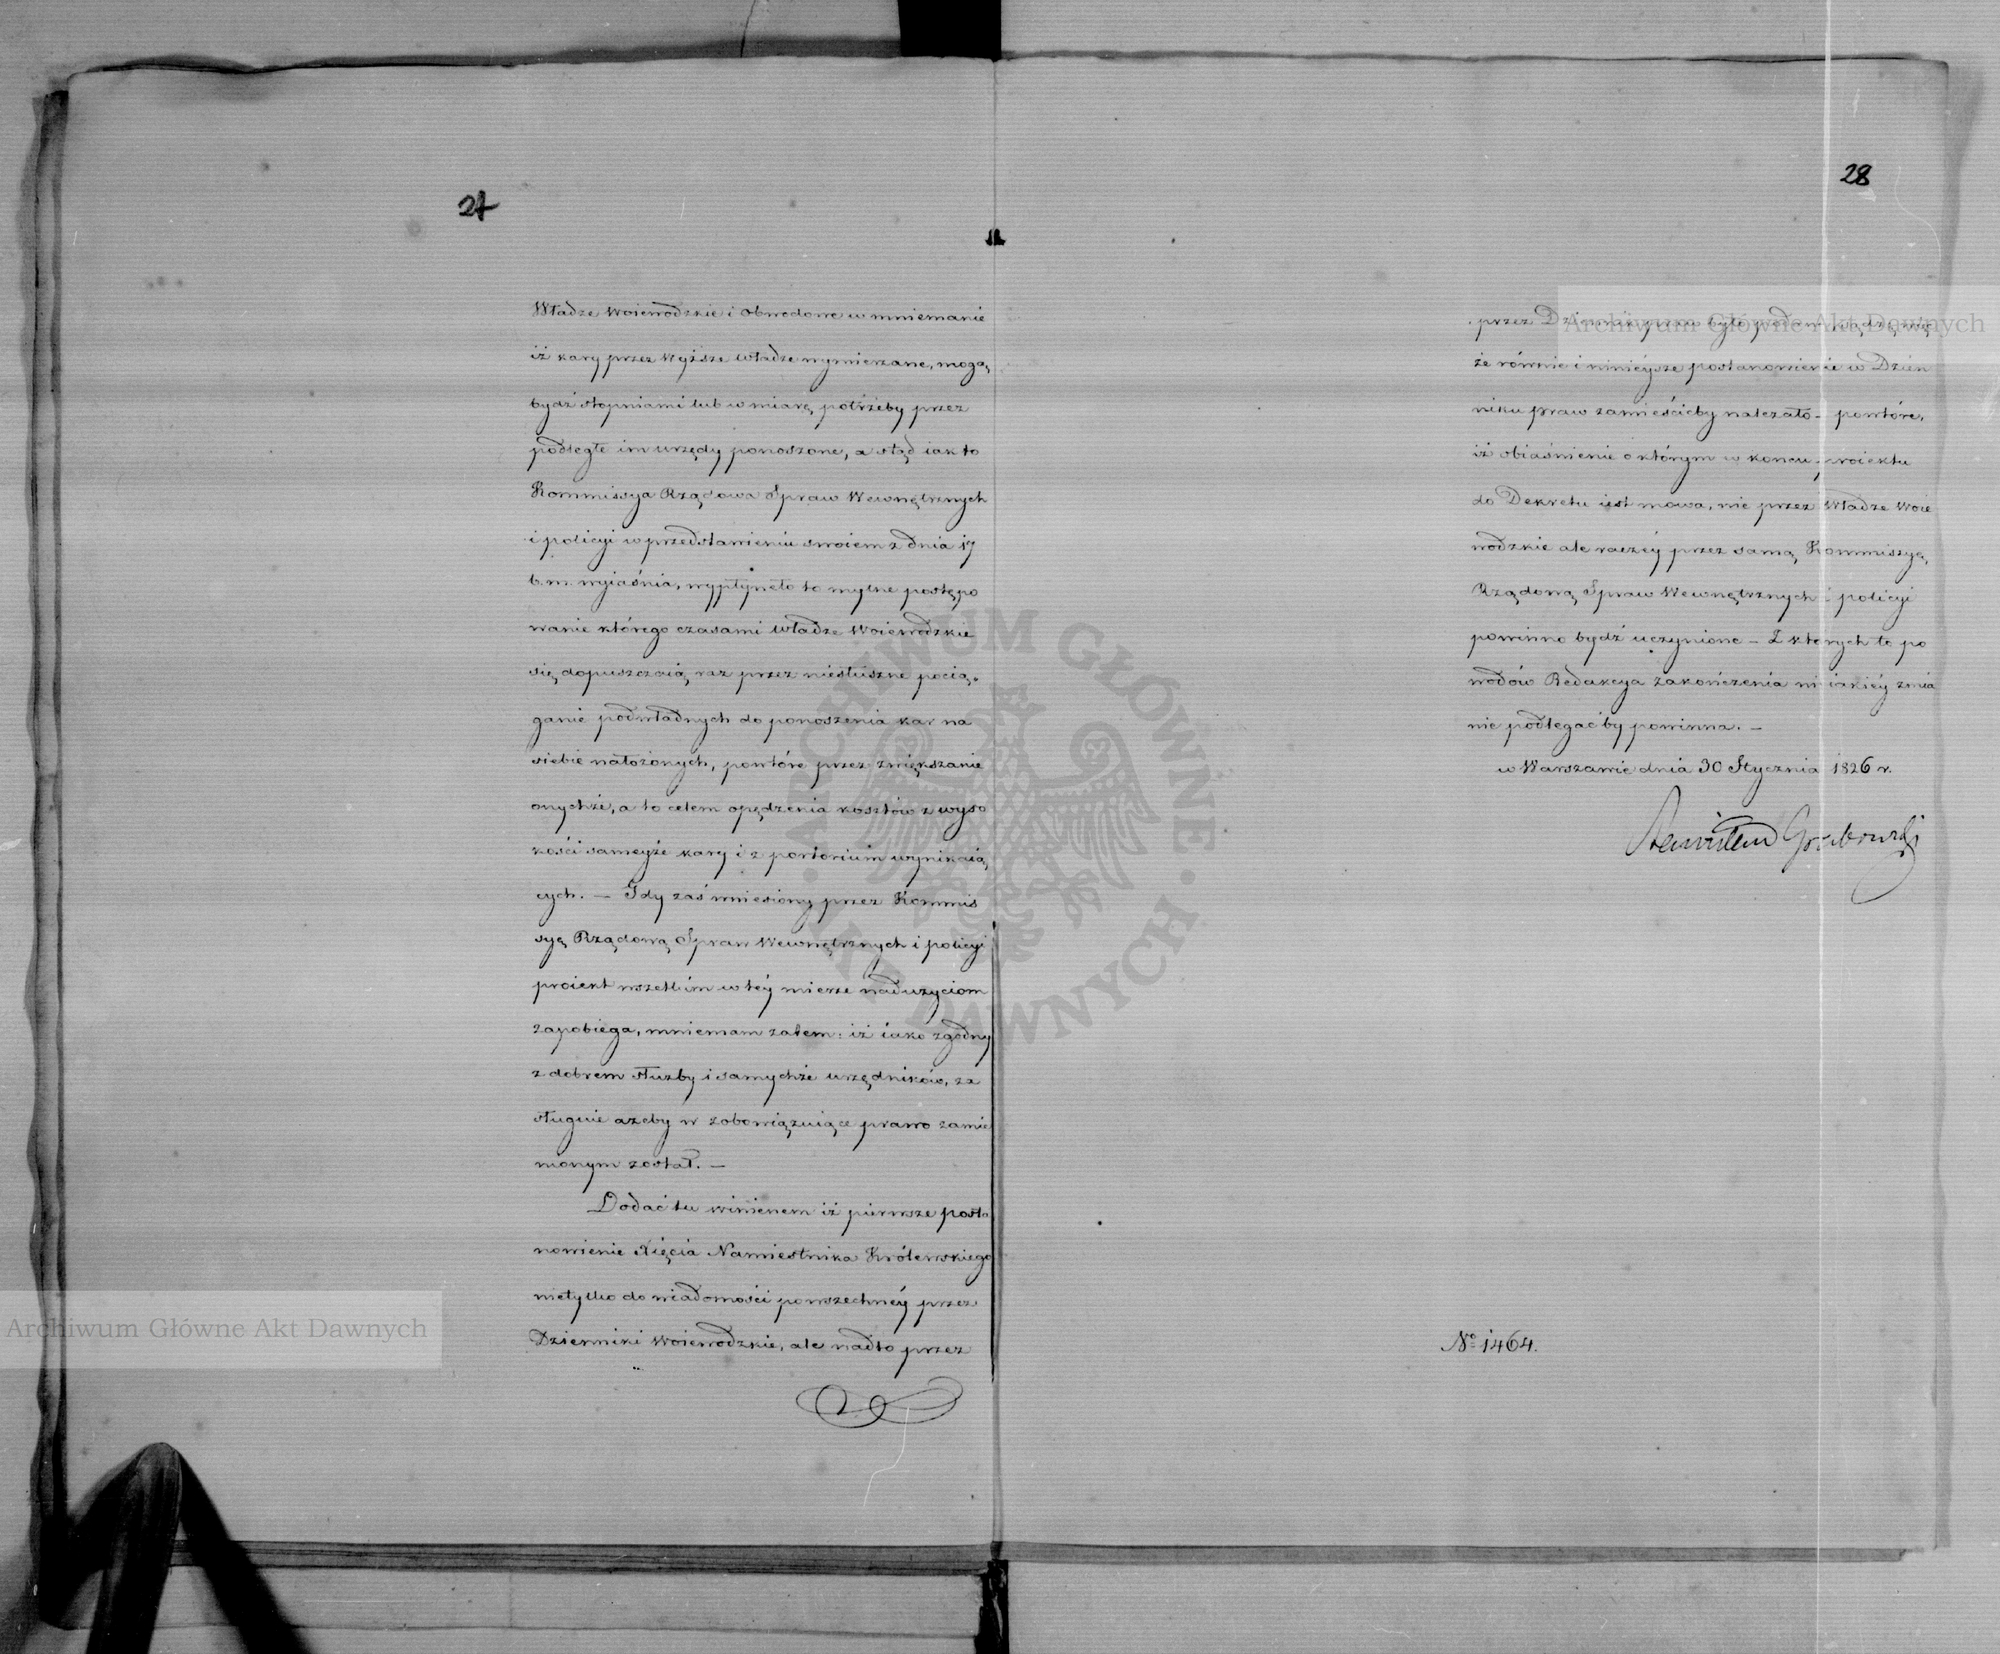 27
Władze Woiewodzkie i obwodowe w mniemanie
iż kary przez Wyższe władze wymierzane, mogą
bydź stopniami lub w miarę potrzeby przez
podległe im urzędy ponoszone, a stąd iak to
Kommissya Rządowa Spraw Wewnętrznych
i policyi w przedstawieniu swoiem z dnia 17
b. m. wyiaśnia, wypłynęło to mylne postępo
wanie którego czasami władze Woiewodzkie
się dopuszczaią, raz przez niesłuszne pocią-
ganie podwładnych do ponoszenia kar na
siebie nałożonych, powtóre przez zwiększanie
onychże, a to celem opędzenia kosztów z wyso
kości sameyże kary i z portorium wynikaią
cych. — Gdy zaś wniesiony przez Kommis
syą Rządową Spraw Wewnętrznych i policyi
proiekt wszelkim w téy mierze nadużyciom
zapobiega, mniemam zatem: iż iako zgodny
z dobrem służby i samychże urzędników, za
sługuie ażeby w zobowiązuiące prawo zamie
nionym został. —
Dodać tu winienem iż pierwsze posta
nowienie Xięcia Namiestnika Królewskiego
nietylko do wiadomości powszechnéy przez
Dzienniki Woiewodzkie, ale nadto przez
28
przez Dziennik praw było podane, sądzę więc
że równie i ninieysze postanowienie w Dzien
niku praw zamieścićby należało — powtóre,
iż obiaśnienie o którym w końcu proiektu
do Dekretu iest mowa, nie przez Władze Woie
wodzkie ale raczéy przez samą Kommissyą
Rządową Spraw Wewnętrznych i policyi
powinno bydź uczynione — Z których to po
wodów Redakcya zakończenia niiakiéy zmia
nie podlegać by powinna. —
w Warszawie dnia 30 Stycznia 1826 r.
Stanisław Grabowski
No 1464.
Archiwum Główne Akt Dawnych
Archiwum Główne Akt Dawnych
ARCHIWUM GŁÓWNE · AKT DAWNYCH ·